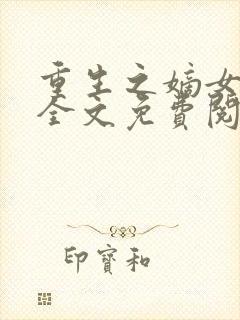 重生之嫡女
全文免費閱
印寶和